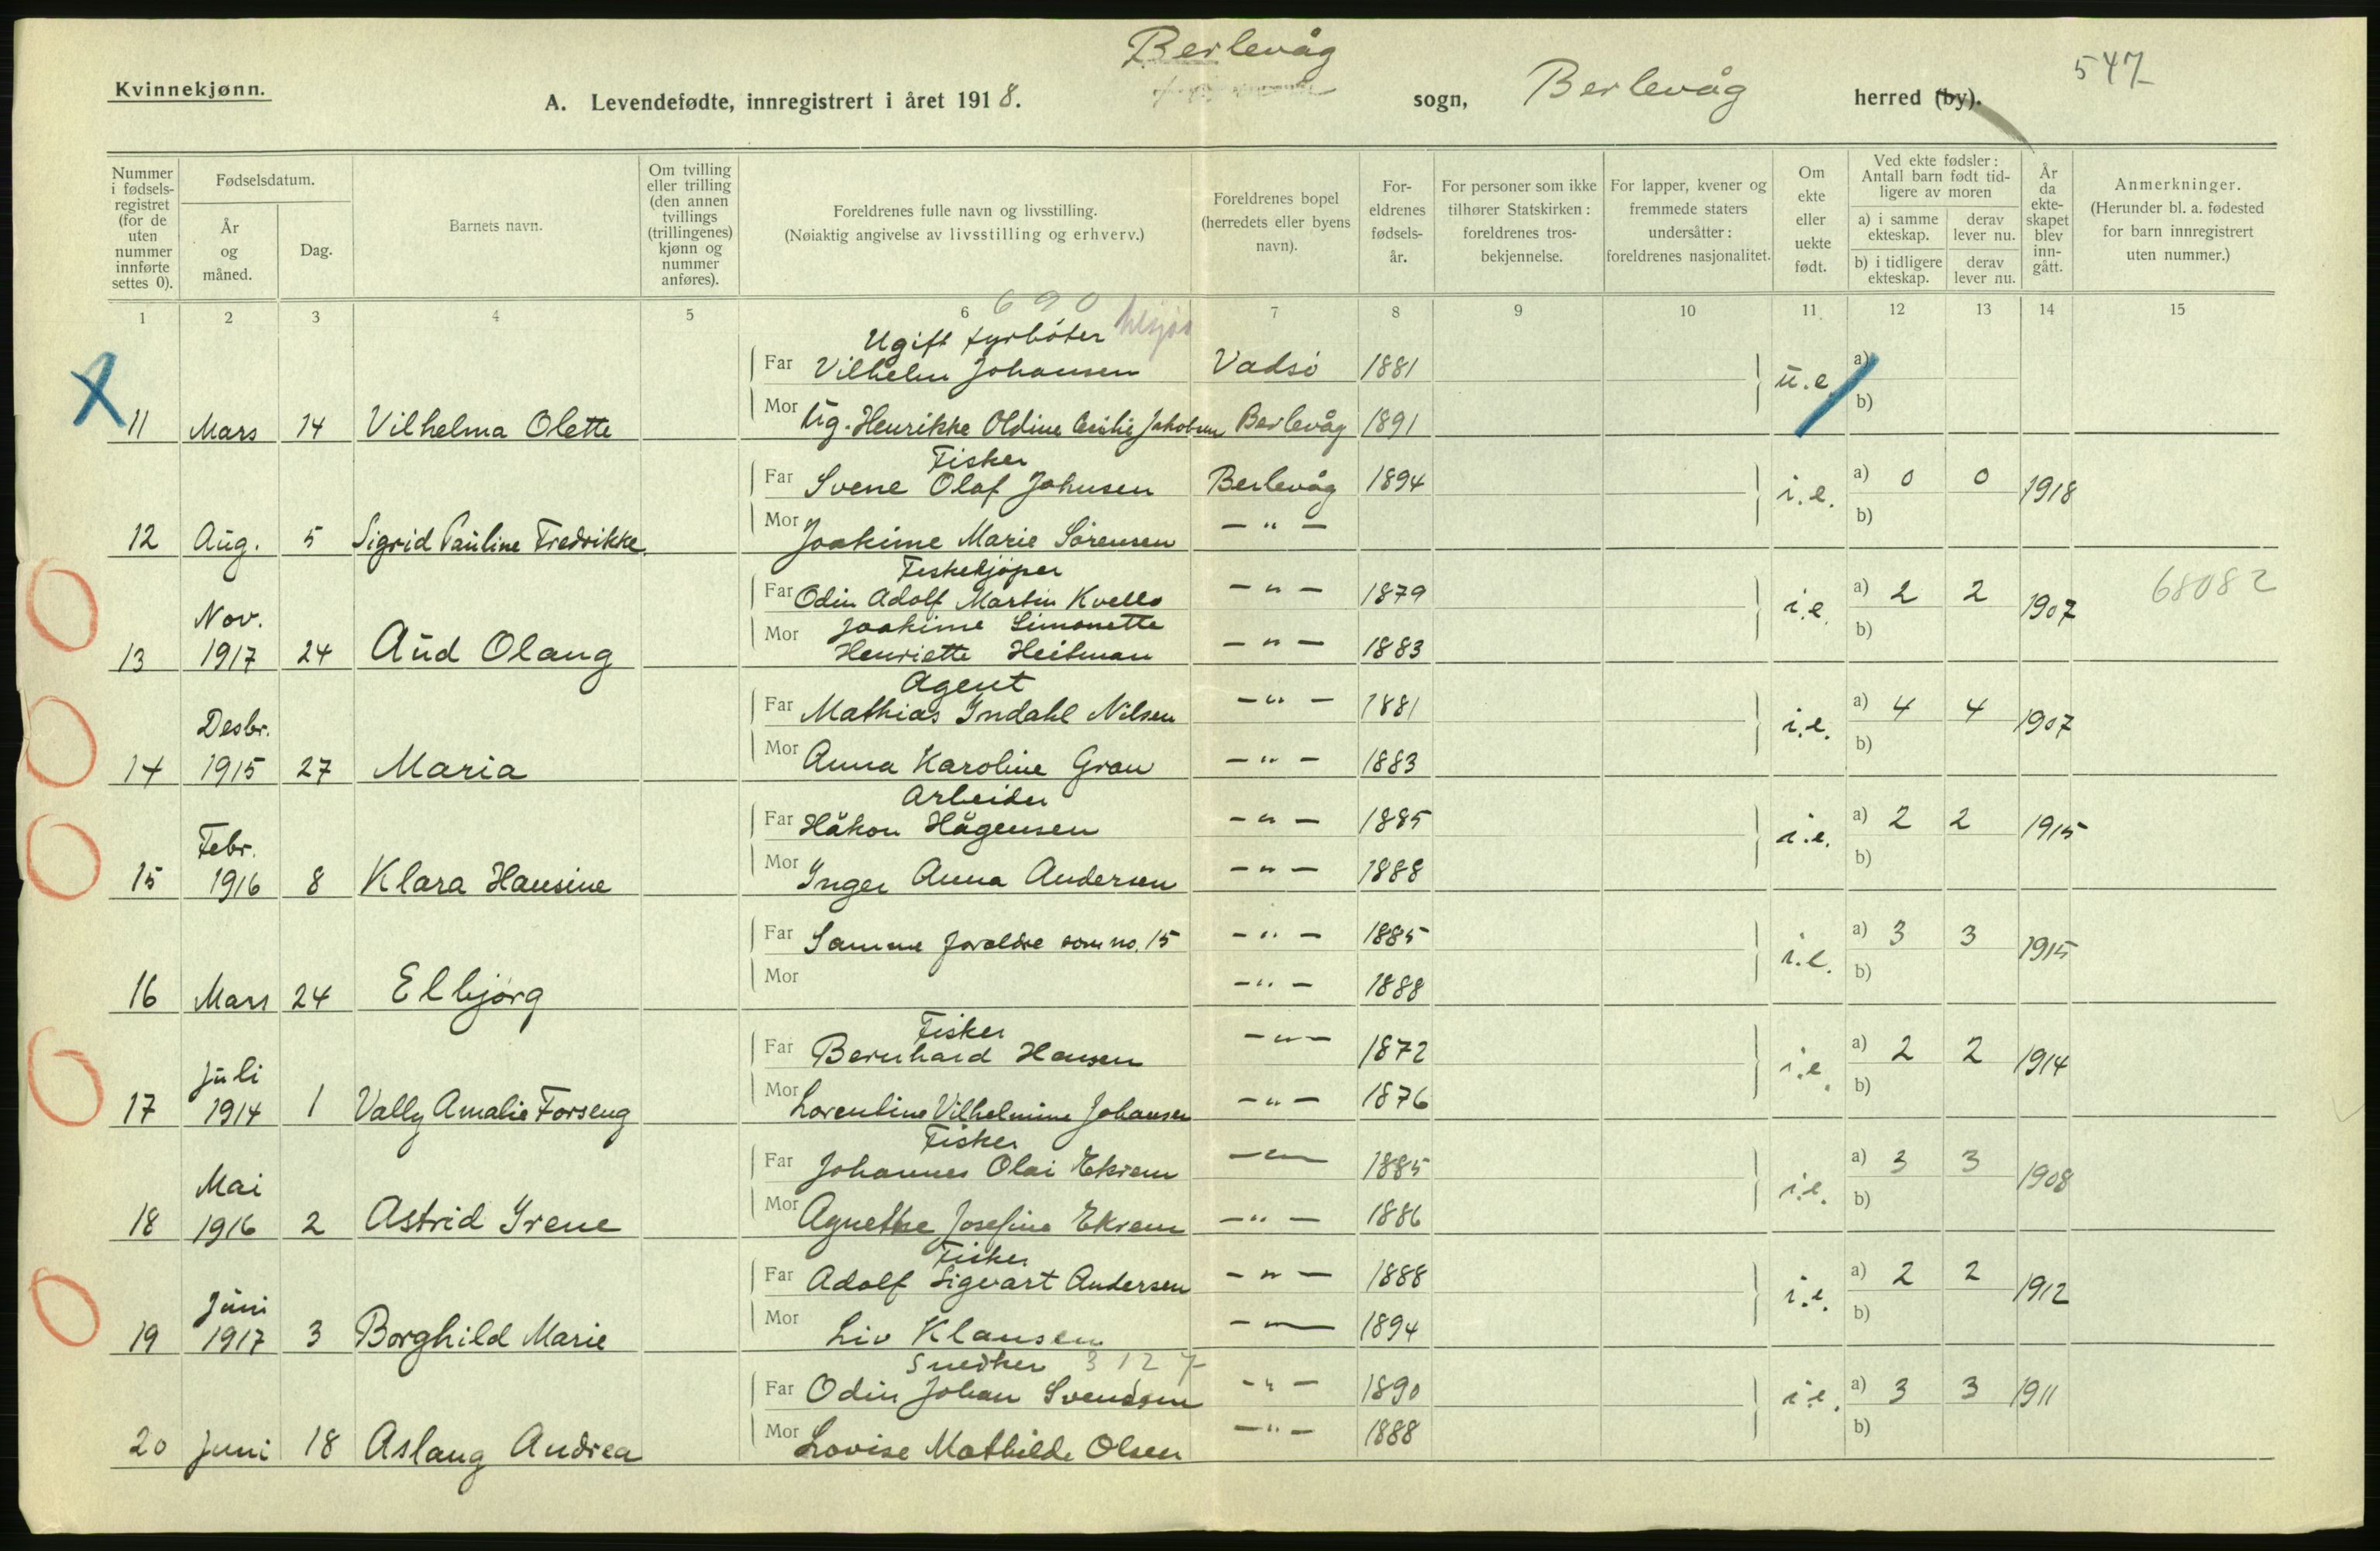 Berlevåg
547
Kvinnekjønn.
A. Levendefødte, innregistrert i året 1918. sogn, Berlevåg herred (by).
Nummer i fødsels-registret (for de uten nummer innførte settes 0).
Fødselsdatum.
År og måned.
Dag.
Barnets navn.
Om tvilling eller trilling (den annen tvillings (trillingenes) kjønn og nummer anføres).
Foreldrenes fulle navn og livsstilling.
(Nøiaktig angivelse av livsstilling og erhverv.)
Foreldrenes bopel (herredets eller byens navn).
For-eldrenes fødsels-år.
For personer som ikke tilhører Statskirken: foreldrenes tros-bekjennelse.
For lapper, kvener og fremmede staters undersåtter: foreldrenes nasjonalitet.
Om ekte eller uekte født.
Ved ekte fødsler: Antall barn født tid-ligere av moren
a) i samme ekteskap.
derav lever nu.
b) i tidligere ekteskap.
derav lever nu.
År da ekte-skapet blev inn-gått.
Anmerkninger.
(Herunder bl. a. fødested for barn innregistrert uten nummer.)
1 2 3 4 5 6 7 8 9 10 11 12 13 14 15
690
Ugift fyrbóter
Far Vilhelm Johansen Vadsó 1881 u.e. a)
Mor Ug. Henrikke Oldine Cecilie Jakobsen Berlevåg 1891 b)
11 Mars 14 Vilhelma Olette
Fisker
Far Svene Olaf Johnsen Berlevåg 1894 i.e. a) 0 0 1918
Mor Joakime Marie Sórensen — " — b)
12 Aug. 5 Sigrid Pauline Fredrikke
Fiskekjóper
Far Odin Adolf Martin Kvello — " — 1879 i.e. a) 2 2 1907 68082
Mor Joakime Simonette
Henriette Heitman — " — 1883 b)
Nov.
13 1917 24 Aud Olaug
Agent
Far Mathias Indahl Nilsen — " — 1881 i.e. a) 4 4 1907
Mor Anna Karoline Gran — " — 1883 b)
Desbr.
14 1915 27 Maria
Arbeider
Far Håkon Hågensen — " — 1885 i.e. a) 2 2 1915
Mor Inger Anna Andersen — " — 1888 b)
Febr.
15 1916 8 Klara Hansine
Far Samme foreldre som no. 15 — " — 1885 i.e. a) 3 3 1915
Mor — " — 1888 b)
16 Mars 24 Elbjórg
Fisker
Far Bernhard Hansen — " — 1872 i.e. a) 2 2 1914
Mor Lorentine Vilhelmine Johansen — " — 1876 b)
Juli
17 1914 1 Vally Amalie Forseng
Fisker
Far Johannes Olai Ekrem — " — 1885 i.e. a) 3 3 1908
Mor Agnethe Josefine Ekrem — " — 1886 b)
Mai
18 1916 2 Astrid Irene
Fisker
Far Adolf Sigvart Andersen — " — 1888 i.e. a) 2 2 1912
Mor Liv Klausen — " — 1894 b)
Juni
19 1917 3 Borghild Marie
Snedker 3127
Far Odin Johan Svendsen — " — 1890 i.e. a) 3 3 1911
Mor Lovise Mathilde Olsen — " — 1888 b)
20 Juni 18 Aslaug Andrea